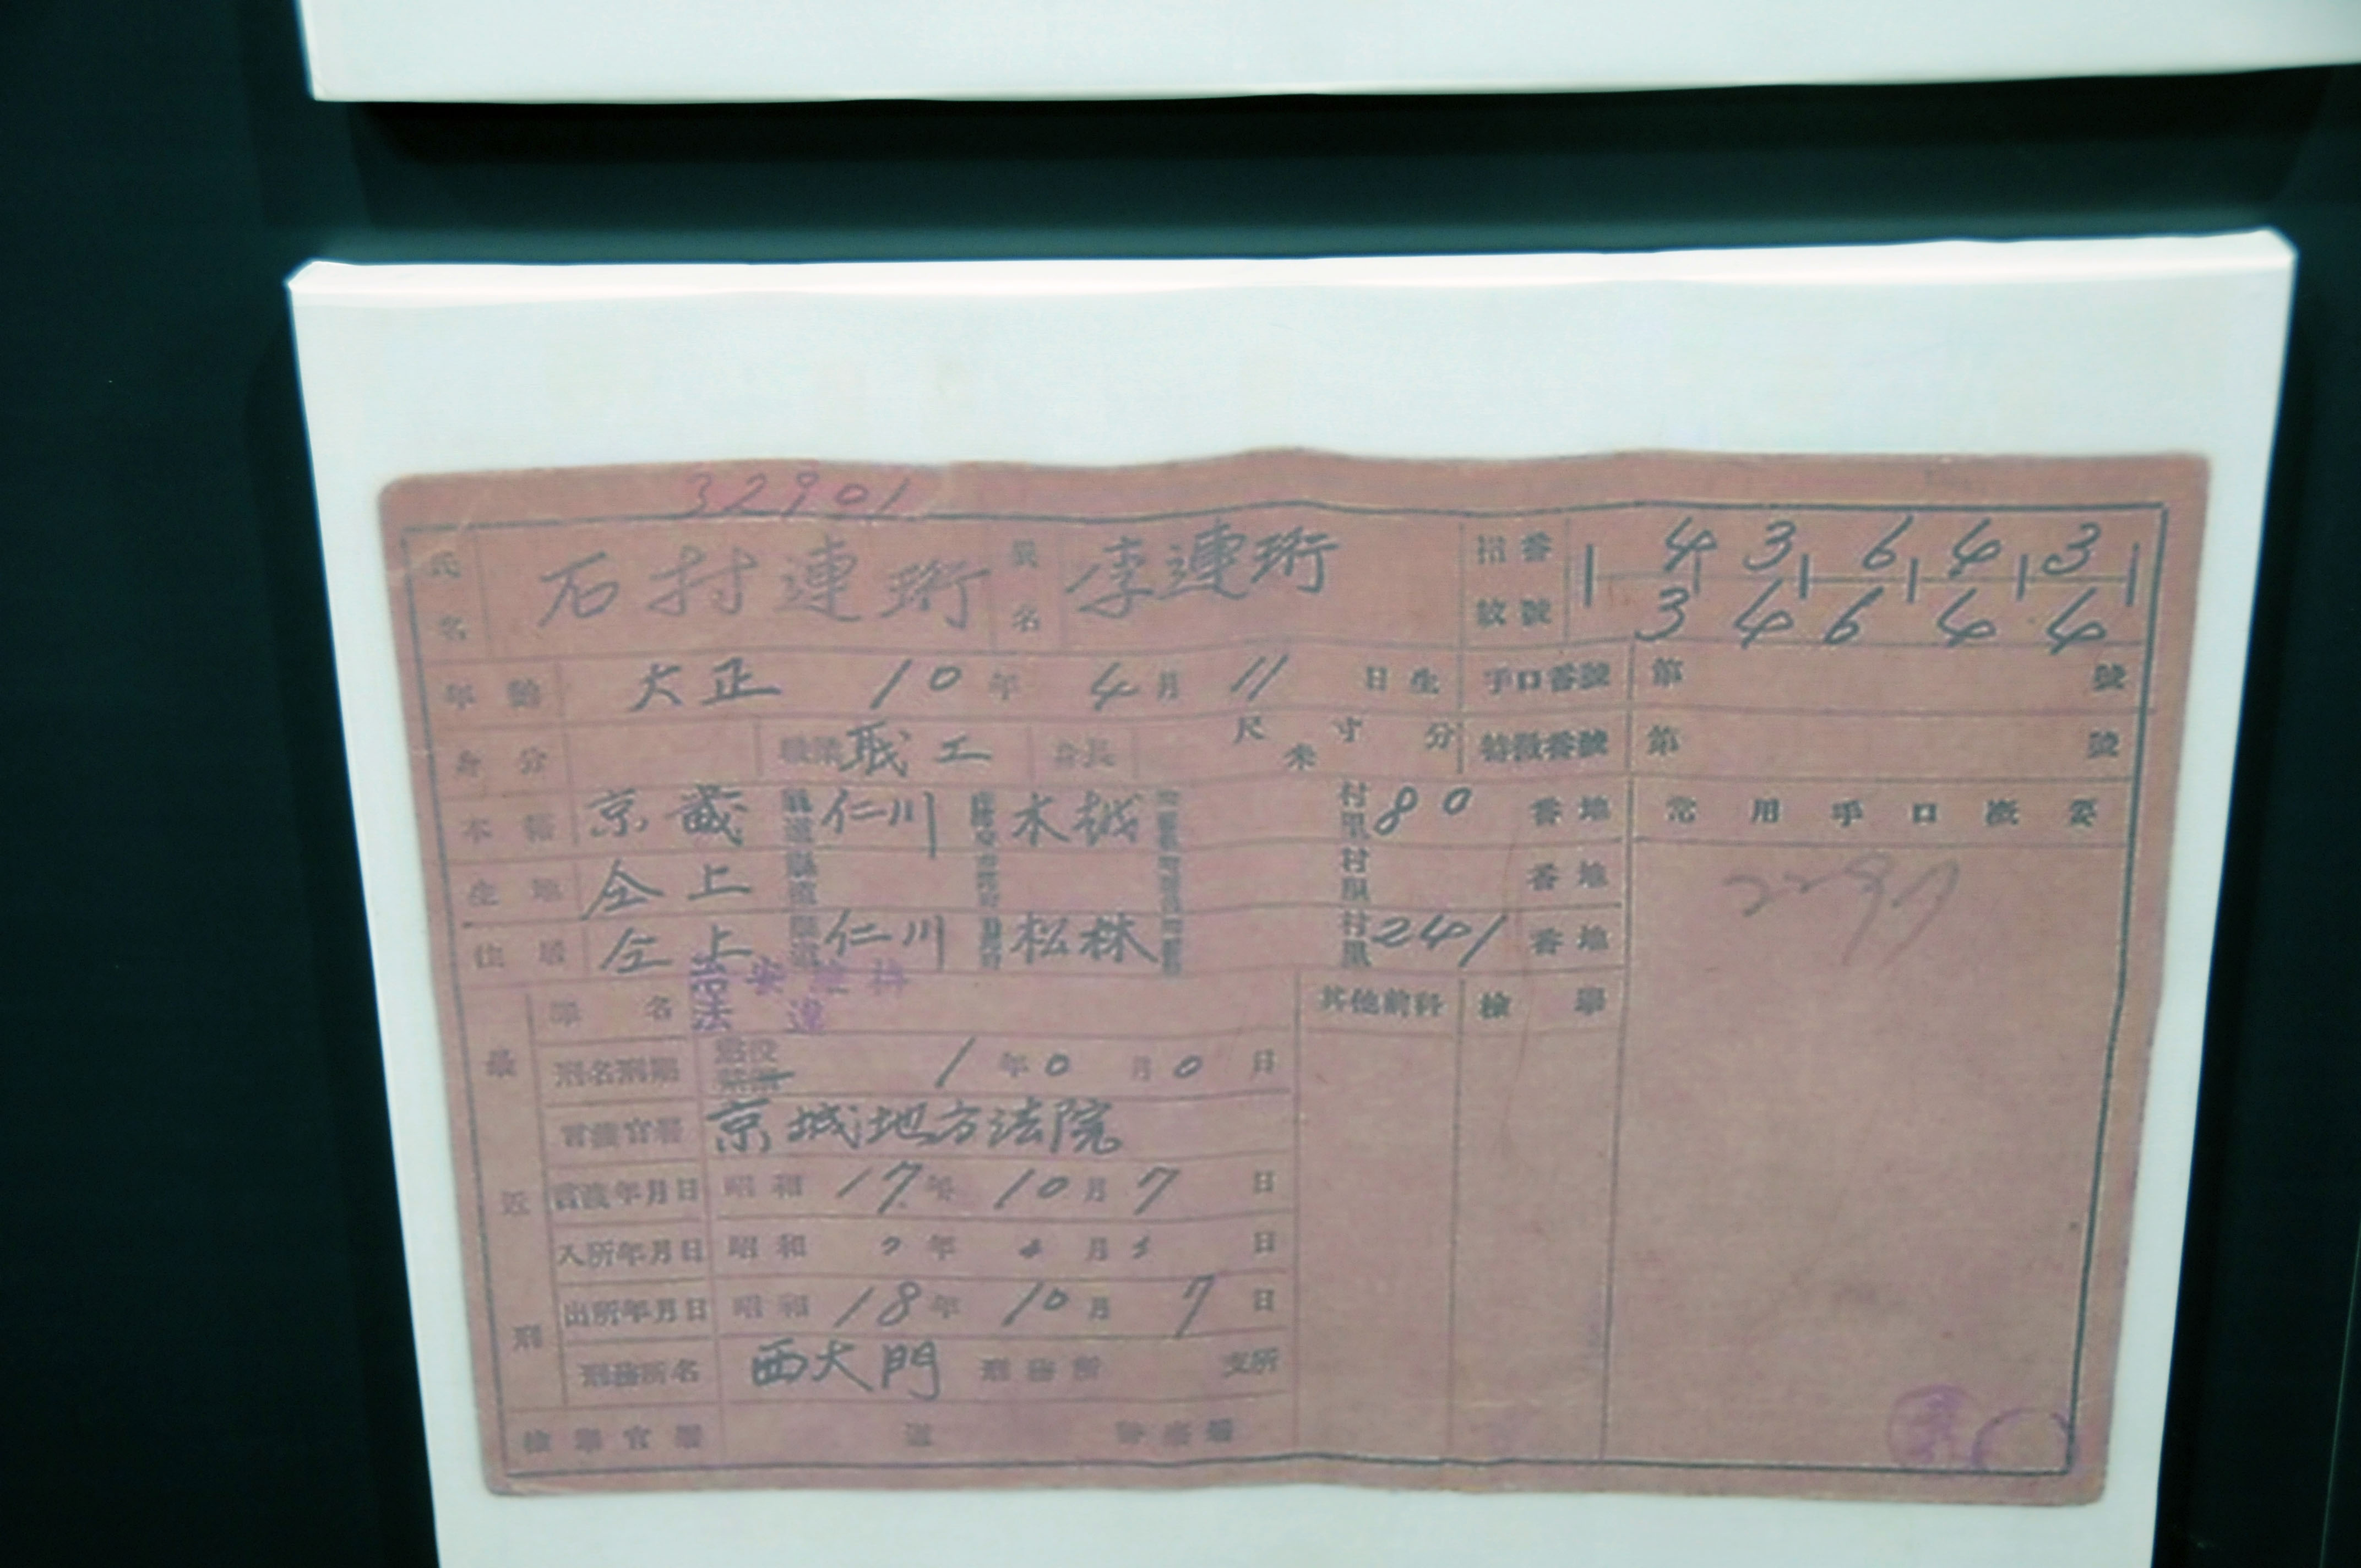 32901
氏名 石村連珩 異名 李連珩 指紋番號 4 3 6 4 3
3 4 6 4 4
年齡 大正 10年 4月 11日生 手口番號 第 號
身分 職業 職工 身長 尺寸分 米 特徵番號 第 號
本籍 京畿 仁川 村里 80 番地 常用手口槪要
生地 仝上 番地 2297
住居 仝上 仁川 松林 241 番地
罪名 治安維持法違 其他前科 檢擧
最近刑
刑名刑期 懲役 1年0月0日
言渡官署 京城地方法院
言渡年月日 昭和 17年 10月 7日
入所年月日 昭和 年 月 日
出所年月日 昭和 18年 10月 7日
刑務所名 西大門 刑務所 支所
檢擧官署 道 警察署